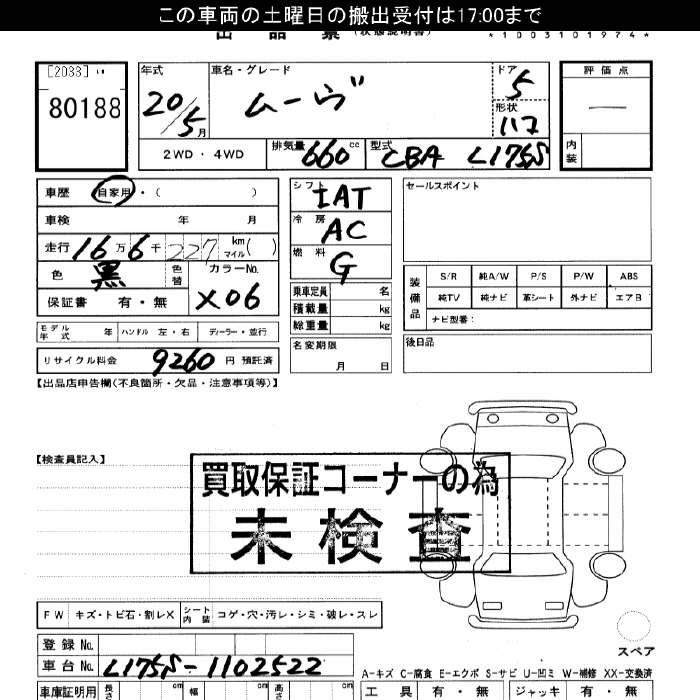 この車両の土曜日の搬出受付は17:00まで
出品票 (状態説明書) *1003101974*
[2033]
80188
年式 20/5月
車名・グレード ムーヴ
ドア 5
形状 11コ
評価点 —
内装
2WD・4WD 排気量 660cc 型式 CBA L175S
車歴 自家用・( )
車検 年 月
走行 16万6千227km マイル( )
色 黒 色替 カラーNo. X06
保証書 有・無
モデル年式 年 ハンドル 左・右 ディーラー・並行
リサイクル料金 9260円 預託済
シフト IAT
冷房 AC
燃料 G
乗車定員 名
積載量 kg
総重量 kg
名変期限 月 日
セールスポイント
装備品 S/R 純A/W P/S P/W ABS
純TV 純ナビ 革シート 外ナビ エアB
ナビ型番:
後日品
【出品店申告欄(不良箇所・欠品・注意事項等)】
【検査員記入】
買取保証コーナーの為
未検査
FW キズ・トビ石・割レX シート内装 コゲ・穴・汚レ・シミ・破レ・スレ
スペア
登録No.
車台No. L175S-1102522
A-キズ C-腐食 E-エクボ S-サビ U-凹ミ W-補修 XX-交換済
車庫証明用 長さ cm 幅 cm 高さ cm
工具 有・無 ジャッキ 有・無